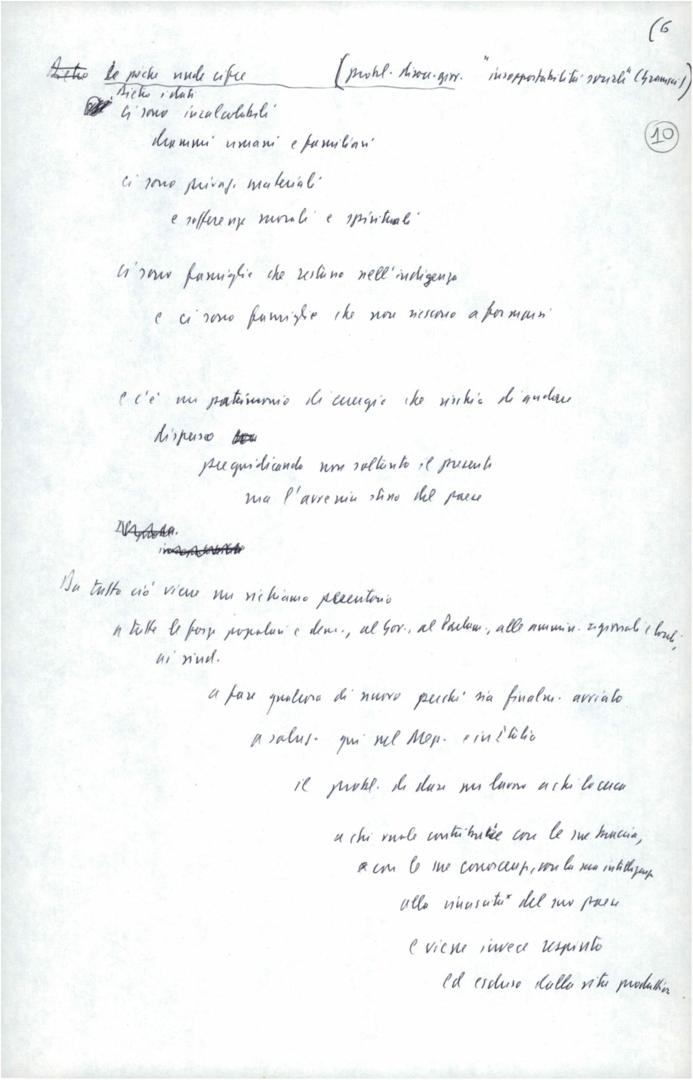 (6
le poche nude cifre (probl. disocc. giov. "insopportabilità sociali" (Gramsci)
Dietro i dati
10
ci sono incalcolabili
drammi umani e familiari
ci sono privaz. materiali
e sofferenze morali e spirituali
ci sono famiglie che restano nell'indigenza
e ci sono famiglie che non riescono a formarsi
e c'è un patrimonio di energie che rischia di andare
disperso
pregiudicando non soltanto il presente
ma l'avvenire stesso del paese
Da tutto ciò viene un richiamo perentorio
a tutte le forze popolari e dem., al Gov., al Parlam., alle ammin. regionali e locali,
ai sind.
a fare qualcosa di nuovo perché sia finalm. avviato
a soluz. qui nel Mezz. e in Italia
il probl. di dare un lavoro a chi lo cerca
a chi vuole contribuire con le sue braccia,
con le sue conoscenze, con la sua intelligenza
alla rinascita del suo paese
e viene invece respinto
ed escluso dalla vita produttiva